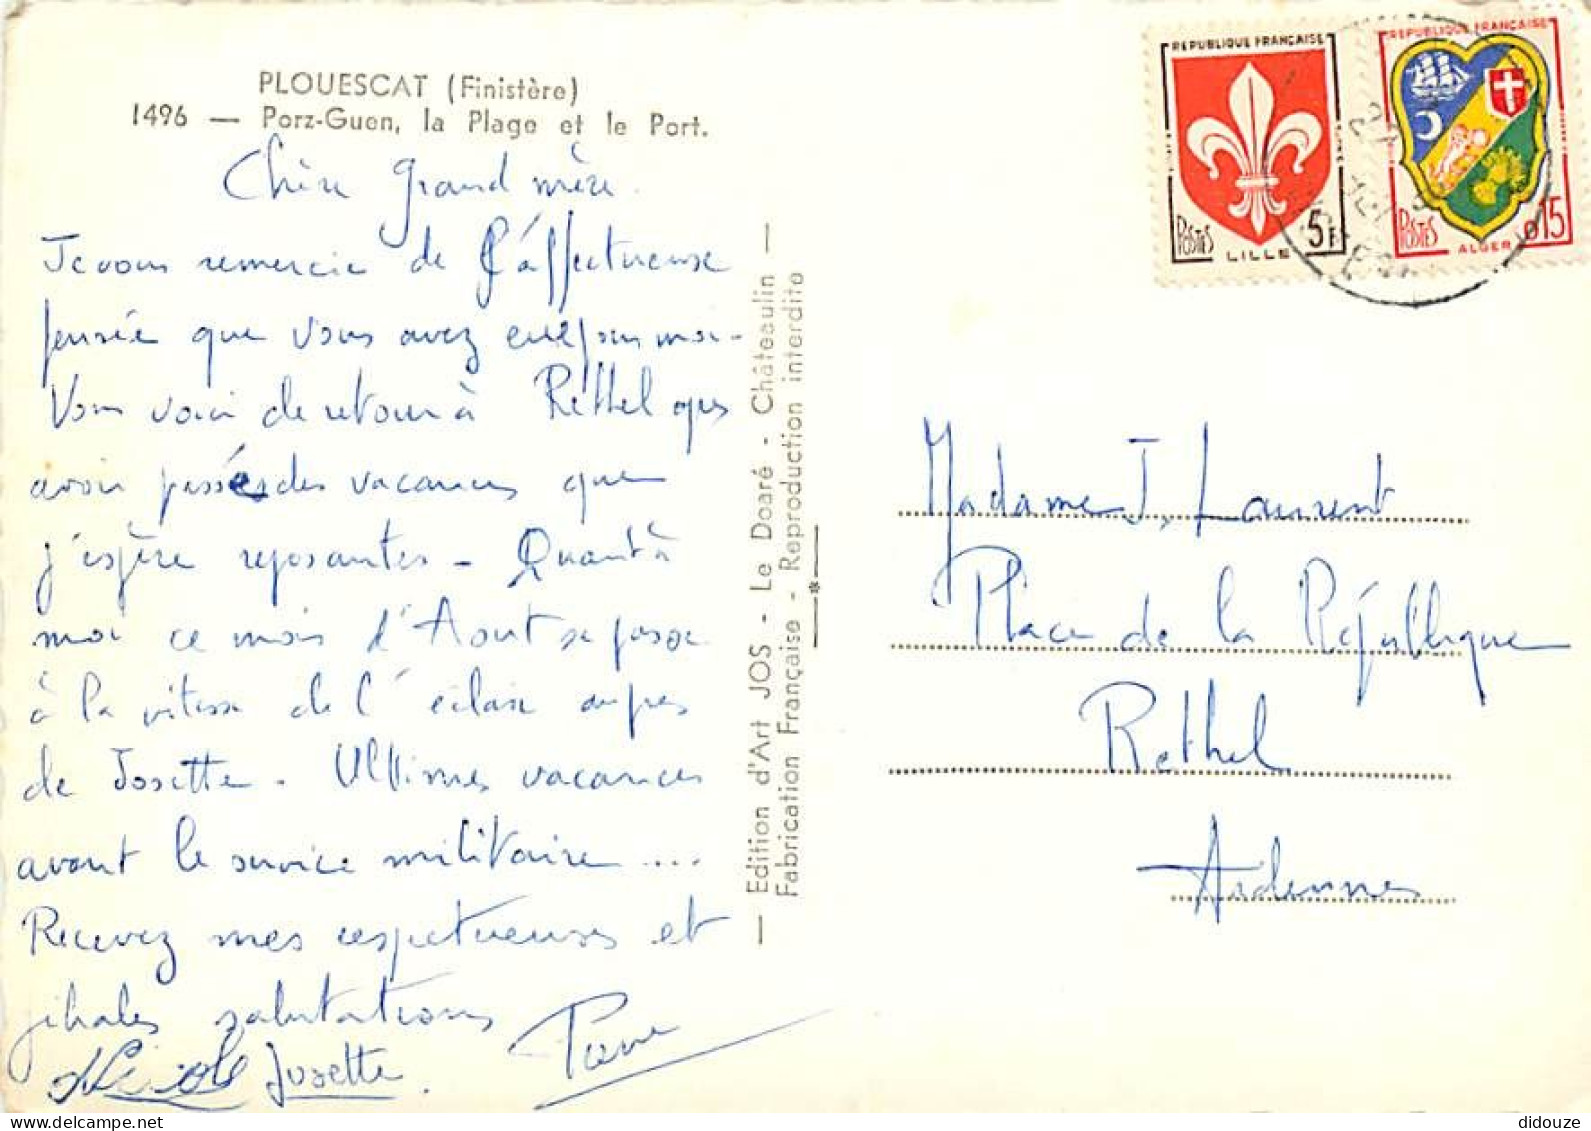 PLOUESCAT (Finistère)
1496 — Porz-Guen, la Plage et le Port.
Chère grand mère.
Je vous remercie de l'affectueuse
pensée que vous avez eue pour moi -
Vous voici de retour à Rethel après
avoir passé des vacances que
j'espère reposantes - Quant à
moi ce mois d'Aout se passe
à la vitesse de l'éclair auprès
de Josette - Ultimes vacances
avant le service militaire ....
Recevez mes respectueuses et
filiales salutations
Nicole Josette. Pierre
— Edition d'Art JOS - Le Doaré - Châteaulin —
Fabrication Française - Reproduction interdite
—*—
REPUBLIQUE FRANÇAISE
POSTES
5F
LILLE
REPUBLIQUE FRANÇAISE
POSTES
0,15
ALGER
Madame J. Laurent
Place de la République
Rethel
Ardennes
didouze